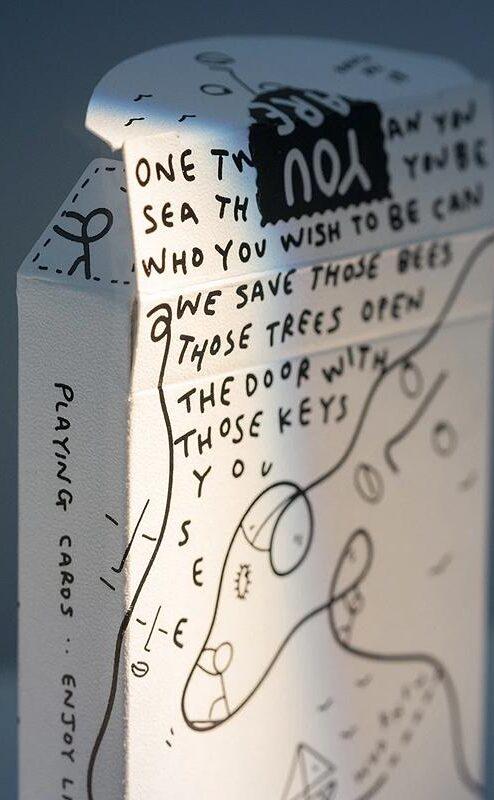 ARE
YOU
ONE TW AN YOU
SEA TH YOU BE
WHO YOU WISH TO BE CAN
WE SAVE THOSE BEES
THOSE TREES OPEN
THE DOOR WITH
THOSE KEYS
YOU
S
E
E
PLAYING CARDS : ENJOY LI